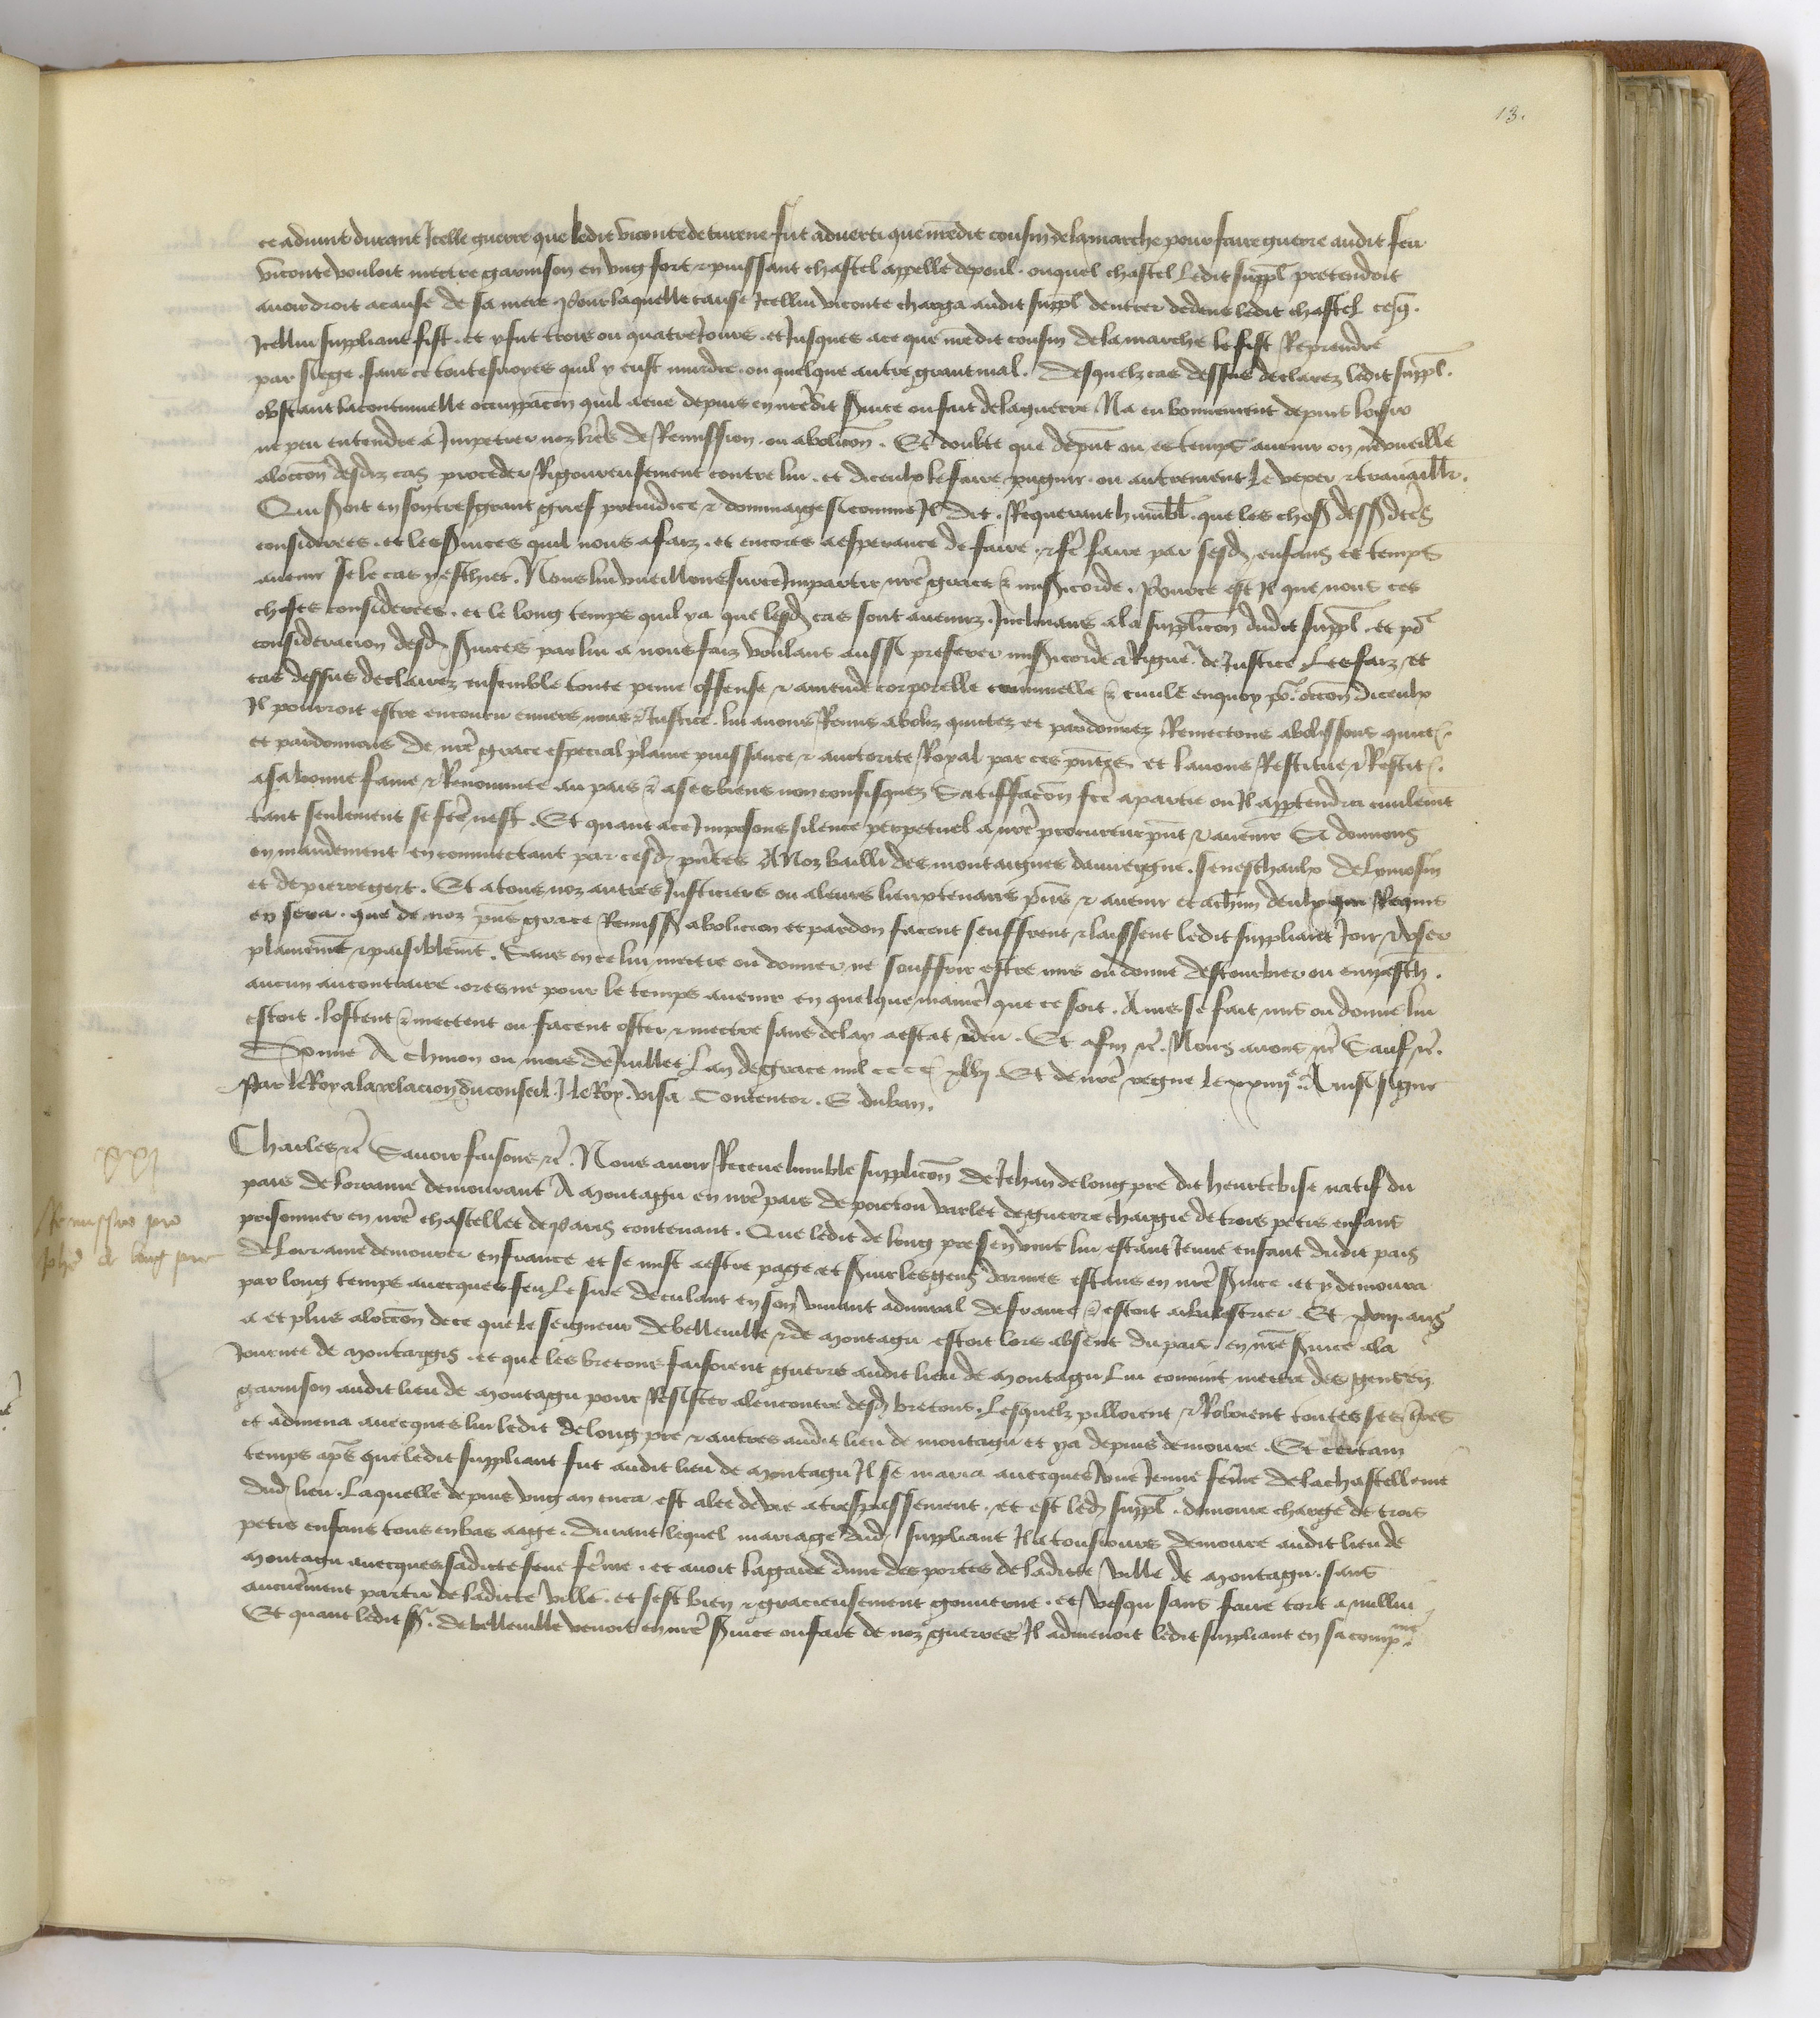 13.
ce advint durant Icelle guerre que ledit viconte de turene fut adverti que nredit cousin de la marche pour faire guerre audit feu
viconte vouloit mectre garnison en ung fort & puissant chastel appelle de peoul . ouquel chastel ledit suppl pretendoit
avoir droit a cause de sa mere Pour laquelle cause Icellui viconte charga audit suppl dentrer dedens ledit chastel ce q
Icellui suppliant fist . et y fut trois ou quatre Jours . et Jusques a ce que nredit cousin de la marche le fist Reprendre
par siege . sans ce toutesvoyes quil y eust murdre . ou quelque autre grant mal . Desquelz cas dessus declarez ledit suppl .
obstant la continuelle occupacon quil a eue depuis en nredit svice ou fait de la guerre Na eu bonnement depuis loisir
ne peu entendre a Impetrer noz lres de Remission . ou abolicon . Et doubte que de pnt ou es temps avenir on vdoueille
a loccon desdiz cas proceder Rigoureusement contre lui . et diceulx le faire pugnir . ou autrement le vexer & travaillr .
Qui soit en son tresgrant grief preiudice & dommaige si comme Il dit . Requerant humbl . que les chos dess dces
considerees . et les svices quil nous a faiz . et encores a esperance de faire . & fe faire par sesd enfans es temps
avenir se le cas y eschiet . Nous lui vueillons sur ce Impartir nre grace & misicorde . Pource est Il que nous ces
choses considerees . et le long temps quil y a que lesd cas sont avenuz . Inclinans a la supplicon dudit suppl . et po
consideracion desd svices par lui a nous faiz voulans aussi preferer misicorde a Rigue de Justice . Les faiz et
cas dessus declairez ensemble toute peine offense & amende corporelle criminelle & civile en quoy po occon diceulx
Il pourroit estre encouru envers nous & Justice . lui avons Remis aboliz quictez et pardonnez Remectons abolissons quict
et pardonnons de nre grace especial plaine puissance & auctorite Royal par ces pntes . et lavons Restitue & Restit .
a sa bonne fame & Renommee au pais & a ses biens non confisquez Satisfacon fce a partie ou Il appartendra civilemt
tant seulement se fce nest . Et quant a ce Imposons silence perpetuel a nre procureur pnt & avenir Si donnons
en mandement en commectant par cesd pntes A Noz bailli des montaignes dauvergne . seneschaulx de lymosin
et de pierregort . Et a tous noz autres Justiciers ou a leurs lieuxtenans pns & avenir et a chun deulx qui Requis
en sera . que de noz pns grace Remiss abolicion et pardon facent seuffrent & laissent ledit suppliant Joir & user
plainemt & paisiblemt . Sans en ce lui mectre ou donner ne souffrir estre mis ou donne destourbier ou empesch .
aucun au contraire . ores ne pour le temps avenir en quelque manie que ce soit . Aincs se fait mis ou donne lui
estoit . lostent & mectent ou facent oster & mectre sans delay a estat deu . Et afin &c . Nous avons &c Sauf &c .
Donne A Chinon ou mois de Juillet Lan de grace mil cccc xlvj . Et de nre regne le xxiiij Ainsi signe
Par le Roy a la relacion du conseil . J . le Roy . visa . Contentor . E duban .
xxj
Remissio pro
Johe de long pre
Charles &c Savoir faisons &c . Nous avoir Receue lumble supplicon de Jehan de long pre dit heurtebise natif du
pais de lorraine demourant A montagu en nre pais de poictou varlet de guerre chargie de trois petis enfans
prisonnier en nre chastellet de Paris contenant . Que ledit de long pre sen vint lui estant Jeune enfant dudit pais
de lorraine demourer en france et se mist a estre page et svir les gens darmes estans en nre svice . et y demoura
par long temps avecques feu le sire de culant en son vivant admiral de france & estoit arbalestrier . Et xviij ans
a et plus a loccon de ce que le seigneur de belleville & de montagu estoit lors absent du pais . en nre svice a la
Journee de montargis . et que les bretons faisoient guerre audit lieu de montagu lui convint mectre des gens en
garnison audit lieu de montagu pour Resister a lencontre desd bretons . Lesquelz pilloient & Roboient toutes ses tres
et admena avecques lui ledit de long pre & autres audit lieu de montagu et y a depuis demoure . Et certain
temps aps que ledit suppliant fut audit lieu de montagu Il se maria avecques une Jeune feme de la chastellenie
dud lieu . Laquelle depuis ung an enca est alee de vie a trespassement . et est led suppl . demoure charge de trois
petis enfans tous en bas aage . durant lequel mariage dud suppliant Il a tousiours demoure audit lieu de
montagu avecques sadicte feue feme . et avoit la garde dune des portes de ladicte ville de montagu . sans
aucunement partir de ladicte ville . et sest bien & gracieusement gouverne . et vesqu sans faire tort a nullui
Et quant ledit sr . de belleville venoit en nre svice ou fait de noz guerres Il admenoit ledit suppliant en sa compnie